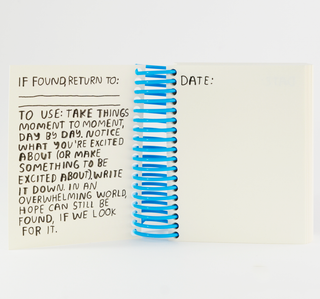 IF FOUND, RETURN TO:
TO USE: TAKE THINGS
MOMENT TO MOMENT,
DAY BY DAY. NOTICE
WHAT YOU'RE EXCITED
ABOUT (OR MAKE
SOMETHING TO BE
EXCITED ABOUT). WRITE
IT DOWN. IN AN
OVERWHELMING WORLD,
HOPE CAN STILL BE
FOUND, IF WE LOOK
FOR IT.
DATE: